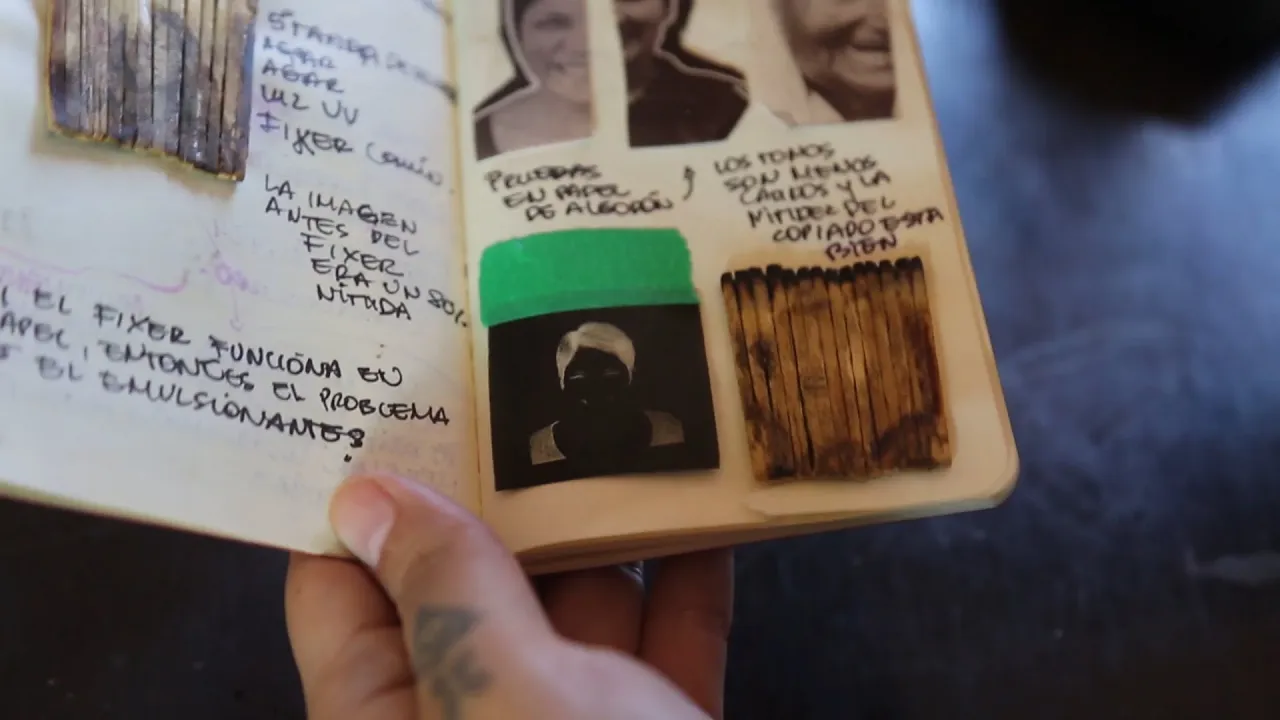 AGAR
AGAR
LUZ UV
FIXER COMÚN.
LA IMAGEN
ANTES DEL
FIXER
ERA UN 80%
NÍTIDA
EL FIXER FUNCIONA EN
PAPEL, ENTONCES EL PROBLEMA
EL EMULSIONANTE?
PRUEBAS
EN PAPEL
DE ALGODÓN
LOS TONOS
SON MENOS
CLAROS Y LA
NITIDEZ DEL
COPIADO ESTA
BIEN